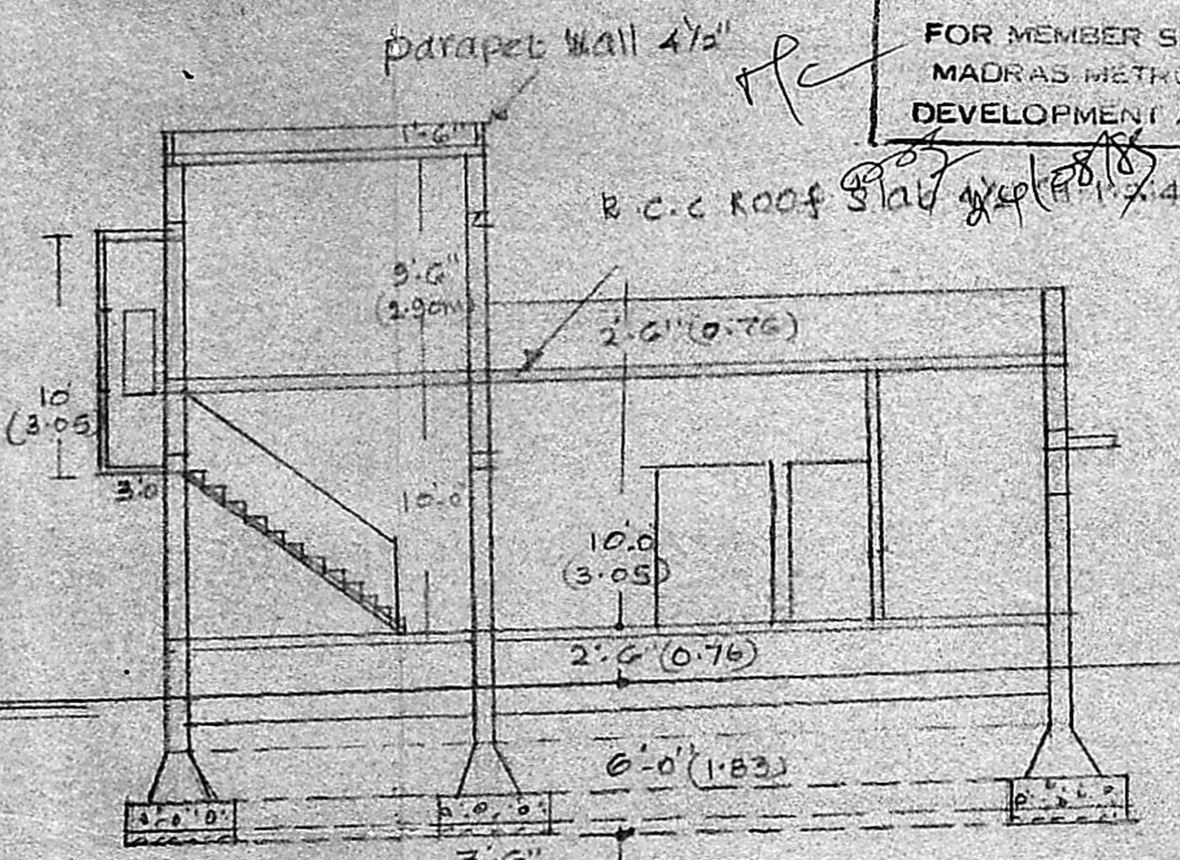 parapet wall 4½"
FOR MEMBER S
MADRAS METR
DEVELOPMENT
1'-6"
R.C.C Roof Slab
9'-6"
(2.90m)
2'-6" (0.76)
10'
(3.05)
3'.0
10'.0"
10'.0
(3.05)
2'-6" (0.76)
6'-0" (1.83)